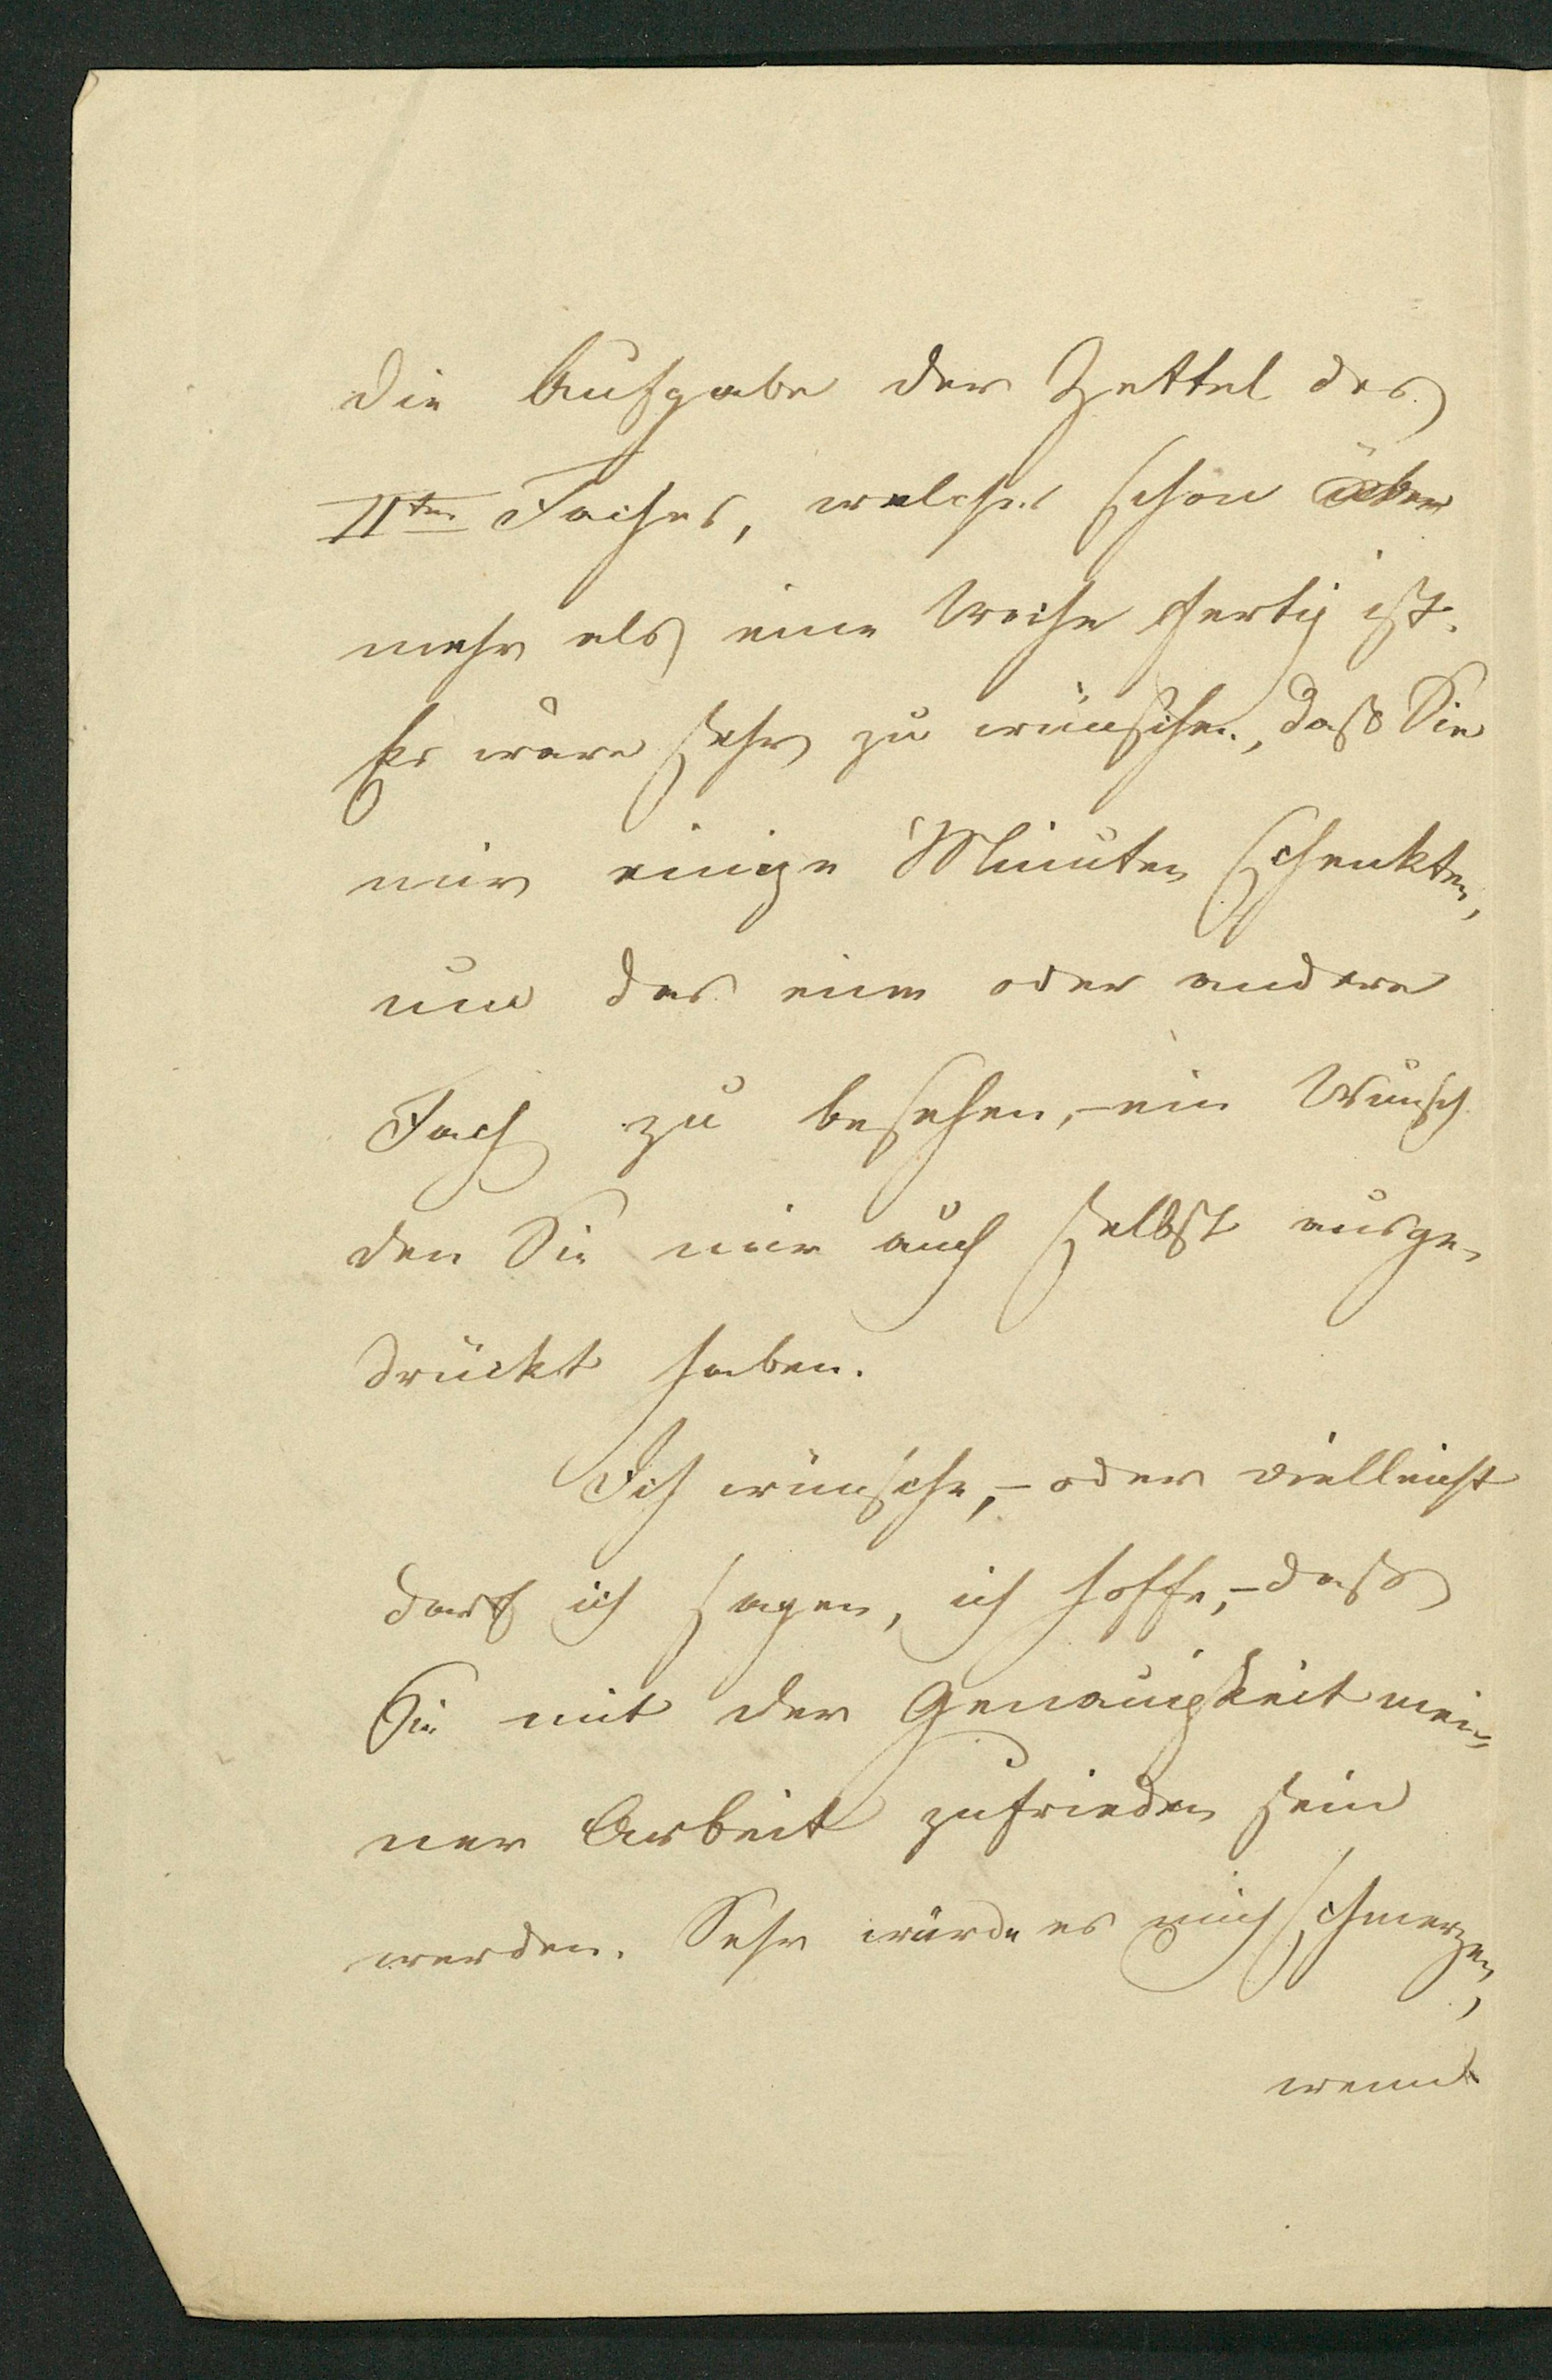 die Aufgabe der Zettel des
IIten Faches, welches schon über
mehr als eine Woche fertig ist.
Es wäre sehr zu wünschen, daß Sie
mir einige Minuten schenkten,
um das eine oder andere
Fach zu besehen, – ein Wunsch
den Sie mir auch selbst ausge-
drückt haben.
Ich wünsche, – oder vielleicht
darf ich sagen, ich hoffe, – daß
Sie mit der Genauigkeit mei-
ner Arbeit zufrieden sein
werden. Sehr würde es mich schmerzen,
wenn